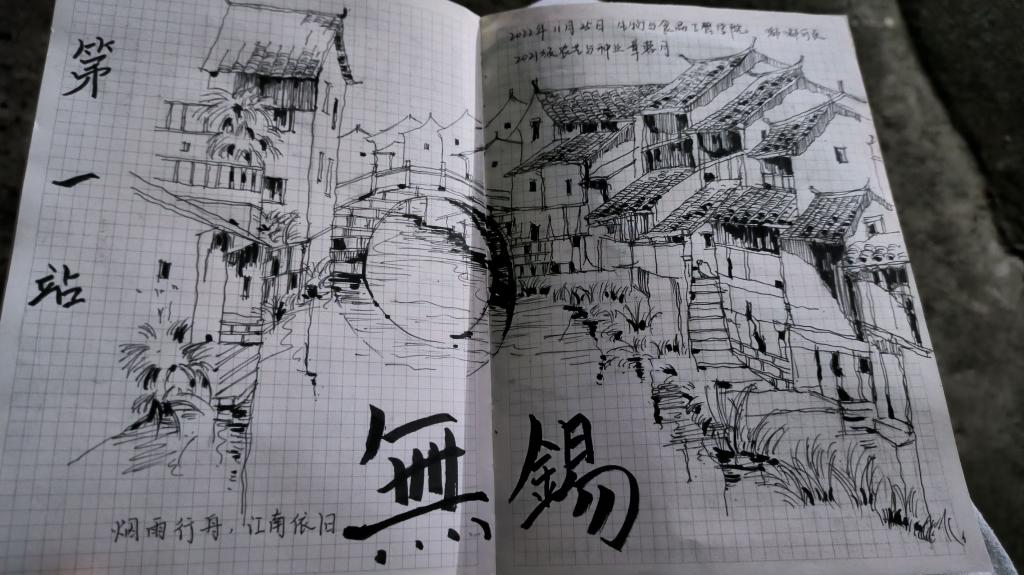 第一站
2022年11月25日 生物与食品工程学院
2021级农艺与种业
無錫
烟雨行舟，江南依旧